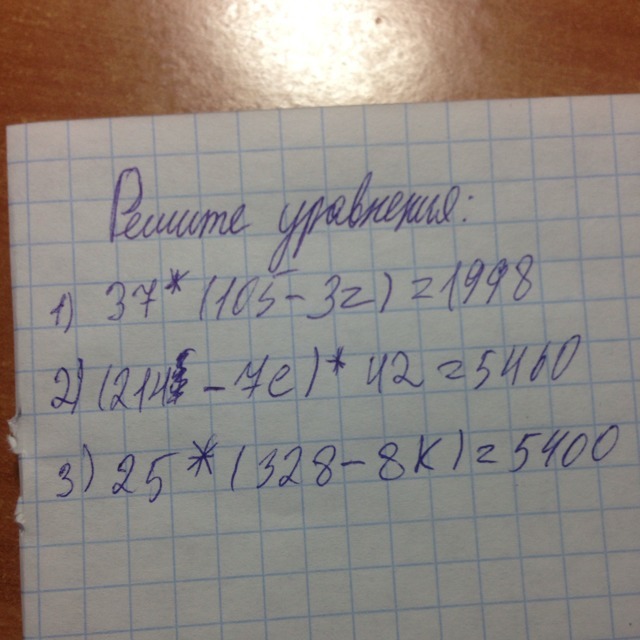 Решите уравнения:
1) 37* (105-3z)=1998
2) (214 - 7c)* 42 =5460
3) 25 * (328-8K)=5400